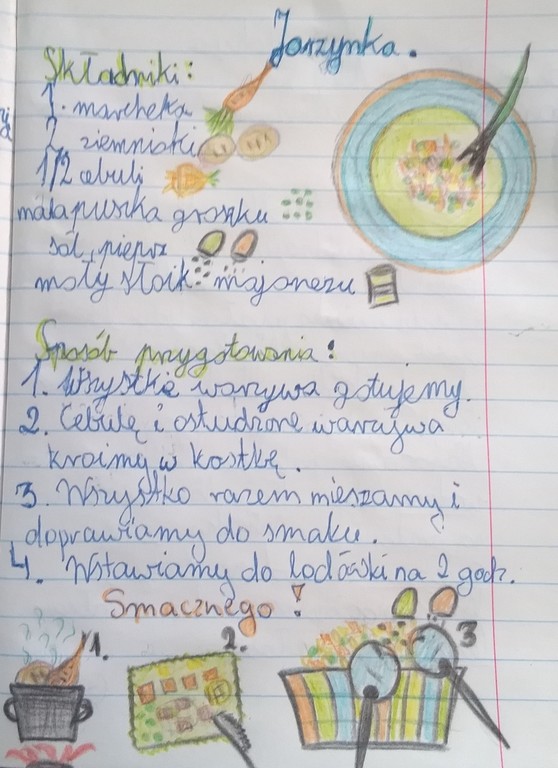 Jarzynka.
Składniki:
1. marchewka
2 ziemniaki
1/2 cebuli
mała puszka groszku
sól, pieprz
mały słoik majonezu
Sposób przygotowania:
1. Wszystkie warzywa gotujemy.
2. Cebulę i ostudzone warzywa
kroimy w kostkę.
3. Wszystko razem mieszamy i
doprawiamy do smaku.
4. Wstawiamy do lodówki na 2 godz.
Smacznego!
1. 2. 3